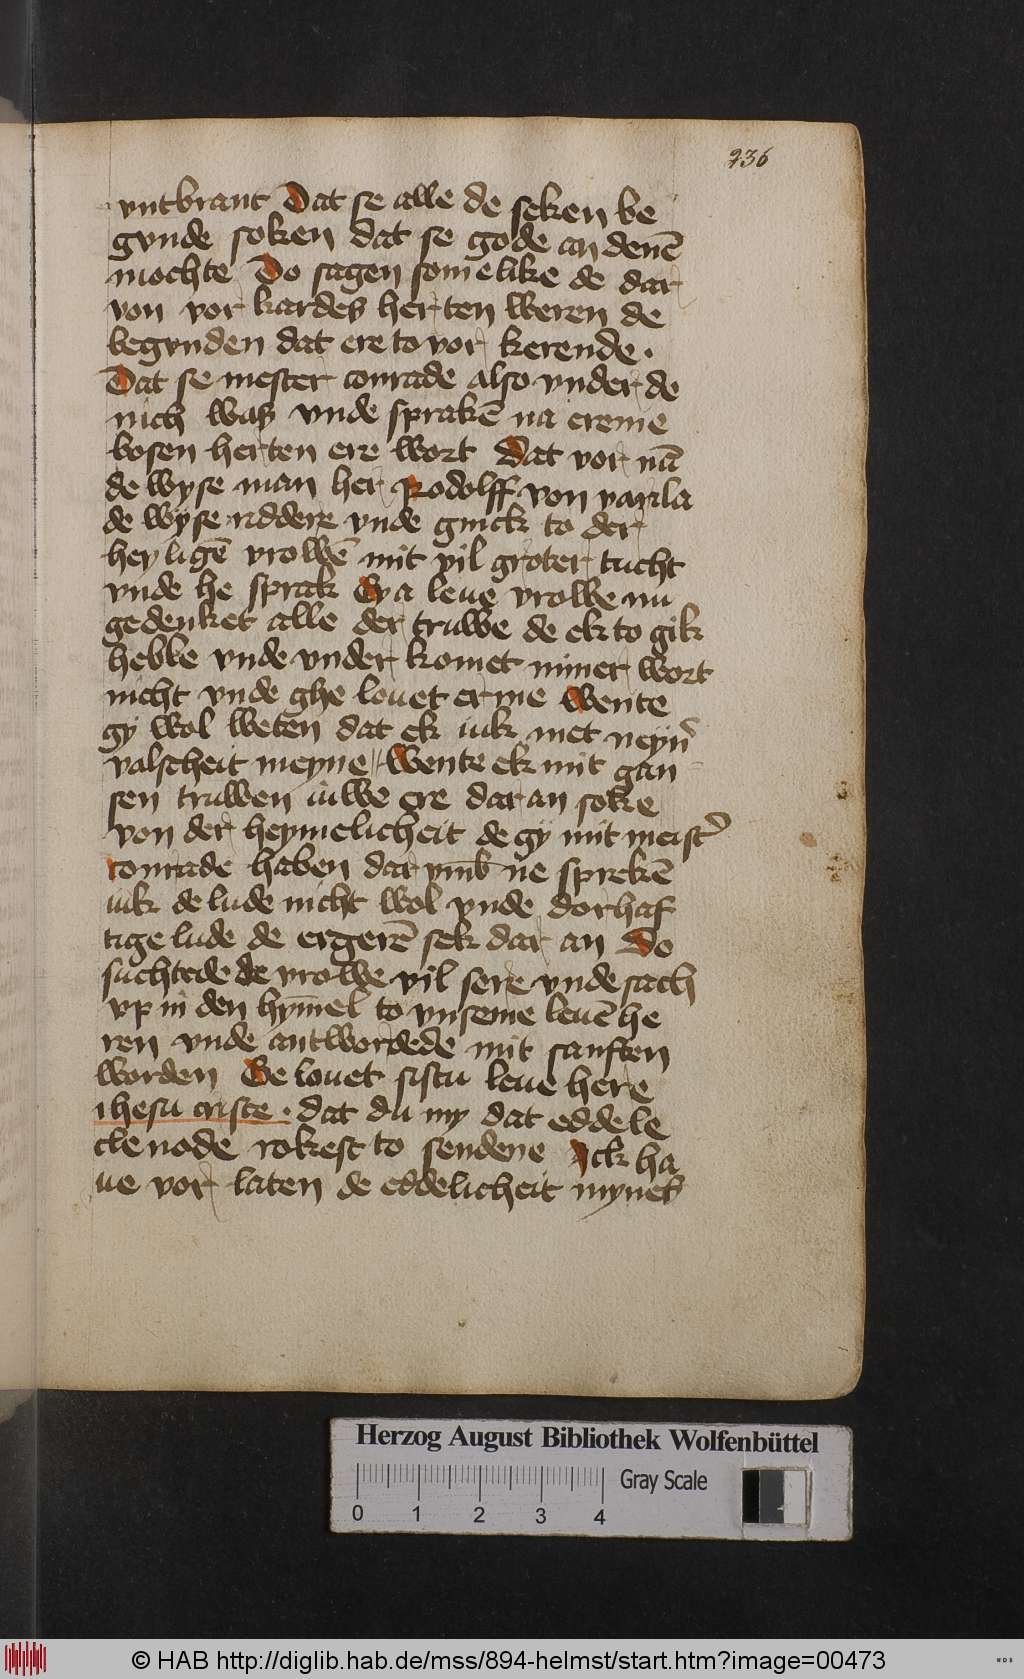 236
vntbrant Dat se alle de seken be
gvnde soken dat se gode an denē
mochte Do sagen somelike de dar
von vor kardes herten weren de
begvnden dat ere to vor kerende .
Dat se mester conrade also vnder de
nich was vnde sprakē na ereme
bosen herten ere wort Dat vor nā
de wyse man her Rodolff von varila
de wyse riddere vnde ginck to der
heyligē vrowē mit vil groter tucht
vnde he sprak Eya leue vrolwe nu
gedenket alle der truwe de ek to gik
hebbe vnde vnder komet miner wort
nicht vnde ghe louet er me Wente
gy wol weten dat ek iuk met neyn
valscheit meyne Wente ek mit gan
sen truwen iuwe ere dar an soke
von der heymelicheit de gy mit meist
conrade haben dar vmb ne sprekē
iuk de lude nicht wol vnde dorhaf
tige lude de ergerē sek dar an Do
suchtede de vrowe vil sere vnde sach
vp in den hymel to vnseme leuē he
ren vnde antwordede mit sanften
worden Ge louet sistu leue here
ihesu criste . dat du my dat eddele
clenode rokest to sendene Ick ha
ue vor laten de eddelicheit mynes
Herzog August Bibliothek Wolfenbüttel
Gray Scale
0 1 2 3 4
© HAB http://diglib.hab.de/mss/894-helmst/start.htm?image=00473